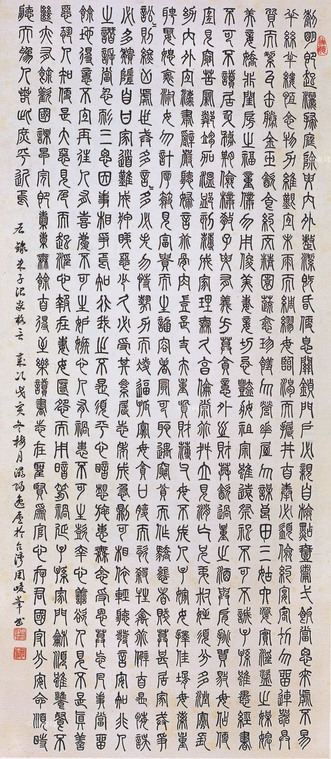 黎明即起灑掃庭除要內外整潔既昏便息關鎖門戶必親自檢點一粥一飯當思來處不易
半絲半縷恆念物力維艱宜未雨而綢繆毋臨渴而掘井自奉必須儉約宴客切勿留連器具
質而潔瓦缶勝金玉飲食約而精園蔬愈珍饈勿營華屋勿謀良田三姑六婆實淫盜之媒婢
美妾嬌非閨房之福童僕勿用俊美妻妾切忌豔妝祖宗雖遠祭祀不可不誠子孫雖愚經書
不可不讀居身務期儉樸教子要有義方莫貪意外之財莫飲過量之酒與肩挑貿易毋佔便
宜見窮苦親鄰須加溫恤刻薄成家理無久享倫常乖舛立見消亡兄弟叔姪須分多潤寡長
幼內外宜法肅辭嚴聽婦言乖骨肉豈是丈夫重貲財薄父母不成人子嫁女擇佳婿毋索重
聘娶媳求淑女勿計厚奩見富貴而生諂容者最可恥遇貧窮而作驕態者賤莫甚居家戒爭
訟訟則終凶處世戒多言言多必失勿恃勢力而凌逼孤寡毋貪口腹而恣殺牲禽乖僻自是悔誤
必多頹惰自甘家道難成狎暱惡少久必受其累屈志老成急則可相依輕聽發言安知非人
之譖訴當忍耐三思因事相爭焉知非我之不是須平心暗想施惠無念受恩莫忘凡事當留
餘地得意不宜再往人有喜慶不可生妒嫉心人有禍患不可生喜幸心善欲人見不是真善
惡恐人知便是大惡見色而起淫心報在妻女匿怨而用暗箭禍延子孫家門和順雖饔飧不
繼亦有餘歡國課早完即囊橐無餘自得至樂讀書志在聖賢為官心存君國守分安命順時
聽天為人若此庶乎近焉
右錄朱子治家格言 歲次 冬 月 於台灣周 書